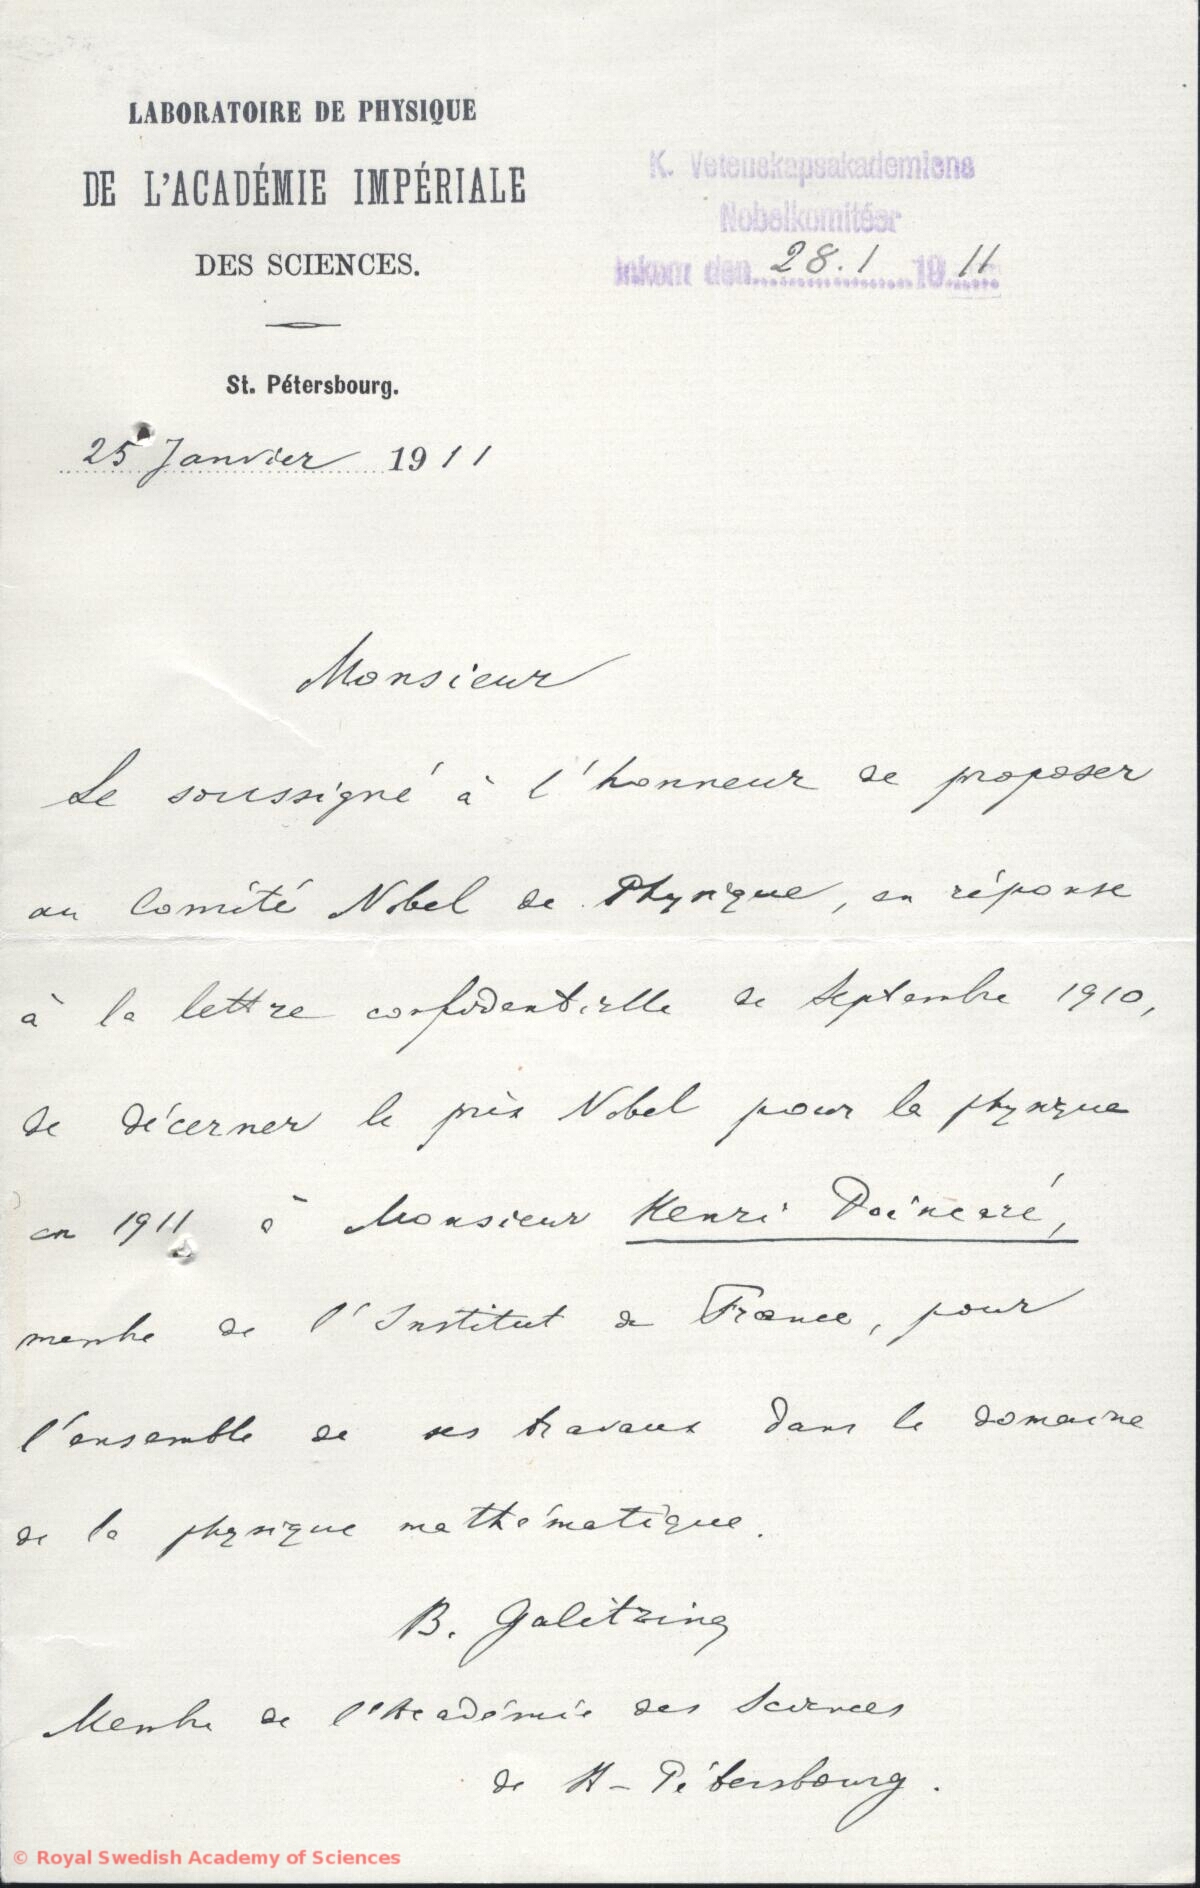 LABORATOIRE DE PHYSIQUE
DE L'ACADÉMIE IMPÉRIALE
DES SCIENCES.
St. Pétersbourg.
25 Janvier 1911
K. Vetenskapsakademiens
Nobelkomitéer
Inkom den 28.1 1911
Monsieur
Le soussigné à l'honneur de proposer
au Comité Nobel de Physique, en réponse
à la lettre confidentielle de Septembre 1910,
de décerner le prix Nobel pour la physique
en 1911 à Monsieur Henri Poincaré,
membre de l'Institut de France, pour
l'ensemble de ses travaux dans le domaine
de la physique mathématique.
B. Galitzine
Membre de l'Académie des Sciences
de St-Pétersbourg.
© Royal Swedish Academy of Sciences